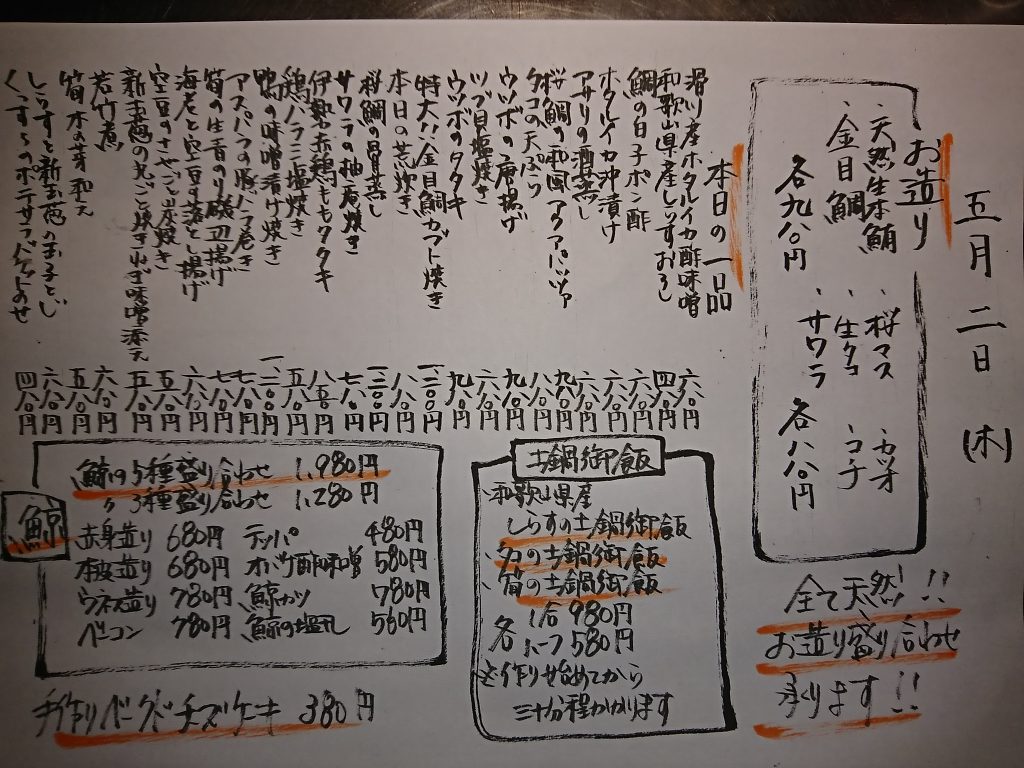 五月二日(木)
お造り
・天然生本鮪
・金目鯛
各九八〇円
・桜マス
・生タコ
・サワラ
カツオ
コチ
各八八〇円
全て天然!!
お造り盛り合わせ
承ります!!
本日の一品
滑川産ホタルイカ酢味噌 六八〇円
和歌山県産しらすおろし 四八〇円
鯛の白子ポン酢 六八〇円
ホタルイカ沖漬け 六八〇円
アサリの酒蒸し 六八〇円
桜鯛の和風アクアパッツァ 九八〇円
タコの天ぷら 八八〇円
ウツボの唐揚げ 九八〇円
ツブ貝塩焼き 六八〇円
ウツボのタタキ 九八〇円
特大!!金目鯛カブト焼き 一、二〇〇円
本日の荒炊き 八八〇円
桜鯛の骨蒸し 一、二〇〇円
サワラの柚庵焼き 七八〇円
伊勢赤鶏ももタタキ 八五〇円
鶏ハラミ塩焼き 五八〇円
鴨の味噌漬け焼き 一、二〇〇円
アスパラの豚バラ巻き 七八〇円
筍の生青のり磯辺揚げ 七八〇円
海老と空豆の落とし揚げ 六八〇円
空豆のさやごと炭焼き 五八〇円
新玉葱の丸ごと焼きねぎ味噌添え 五八〇円
若竹煮 六八〇円
筍木の芽和え 五八〇円
しらすと新玉葱の玉子とじ 六八〇円
くっすらのポテサラバゲットのせ 四八〇円
土鍋御飯
・和歌山県産
しらすの土鍋御飯
・筍の土鍋御飯
各 1合 980円
ハーフ 580円
※作り始めてから
三十分程かかります
鯨
鯨の5種盛り合わせ 1,980円
〃3種盛り合わせ 1,280円
赤身造り 680円 テッパ 480円
本皮造り 680円 オバケ酢味噌 580円
ウネス造り 780円 鯨カツ 780円
ベーコン 780円 鯨の塩 560円
手作りベークドチーズケーキ 380円